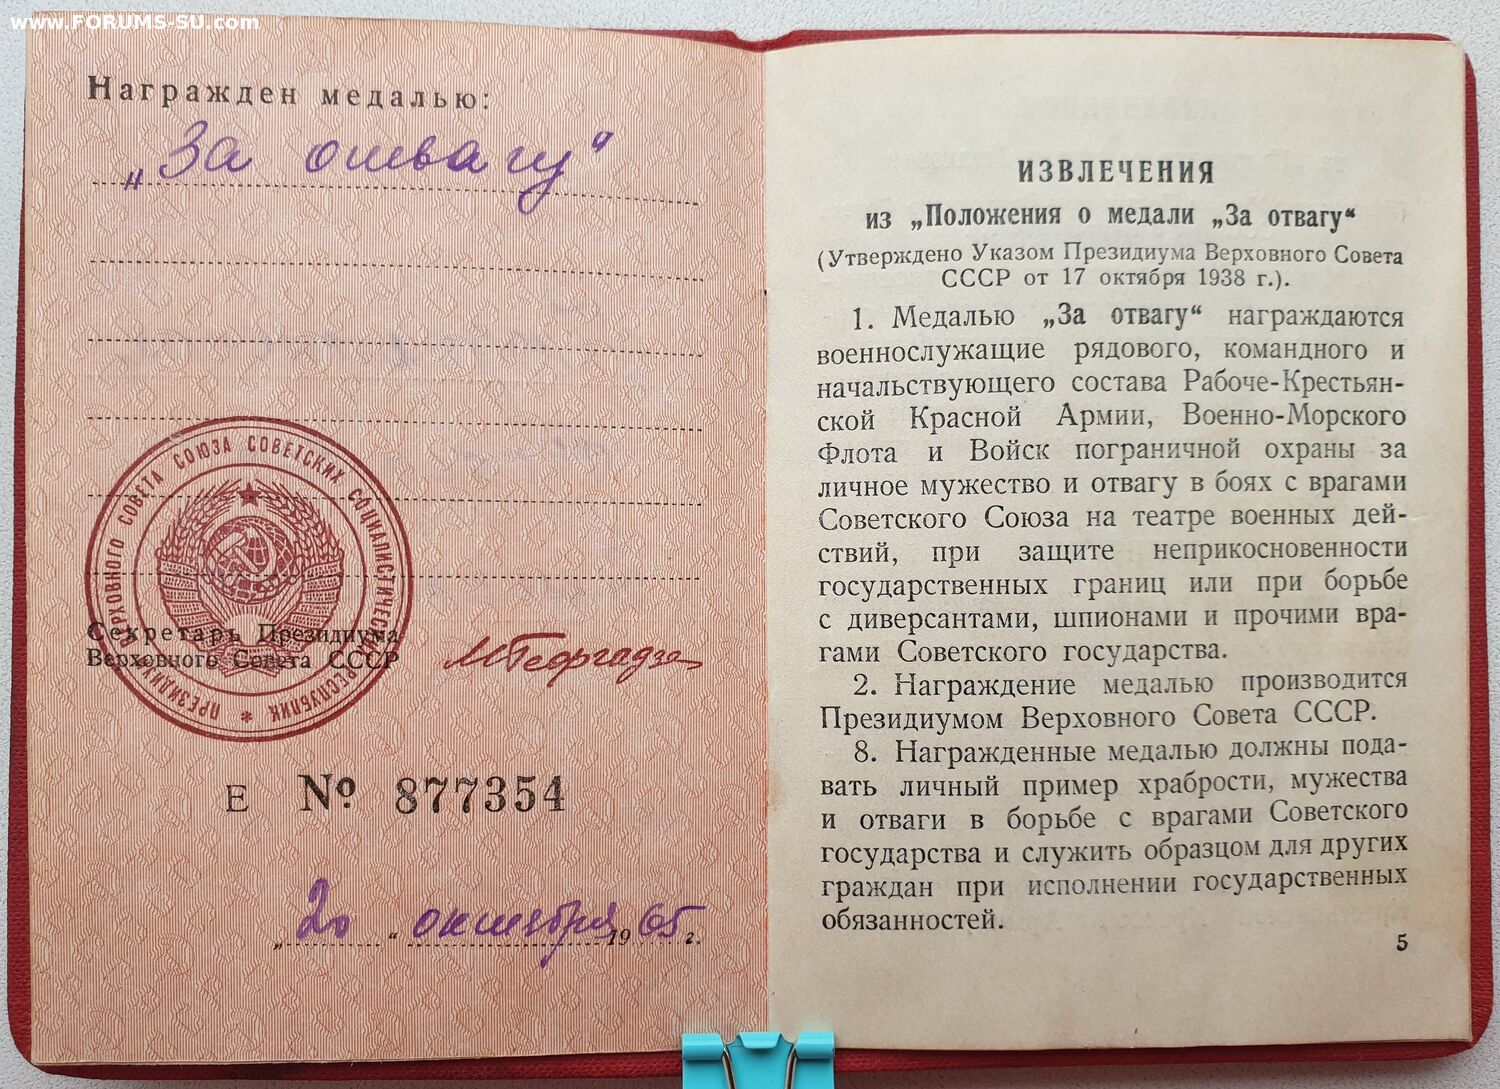 www.FORUMS-SU.com
Награжден медалью:
„За отвагу“
ПРЕЗИДИУМ ВЕРХОВНОГО СОВЕТА СОЮЗА СОВЕТСКИХ СОЦИАЛИСТИЧЕСКИХ РЕСПУБЛИК *
Секретарь Президиума
Верховного Совета СССР
МГеоргадзе
Е № 877354
„20“ октября 1965 г.
ИЗВЛЕЧЕНИЯ
из „Положения о медали „За отвагу“
(Утверждено Указом Президиума Верховного Совета
СССР от 17 октября 1938 г.).
1. Медалью „За отвагу“ награждаются
военнослужащие рядового, командного и
начальствующего состава Рабоче-Крестьян-
ской Красной Армии, Военно-Морского
Флота и Войск пограничной охраны за
личное мужество и отвагу в боях с врагами
Советского Союза на театре военных дей-
ствий, при защите неприкосновенности
государственных границ или при борьбе
с диверсантами, шпионами и прочими вра-
гами Советского государства.
2. Награждение медалью производится
Президиумом Верховного Совета СССР.
8. Награжденные медалью должны пода-
вать личный пример храбрости, мужества
и отваги в борьбе с врагами Советского
государства и служить образцом для других
граждан при исполнении государственных
обязанностей.
5